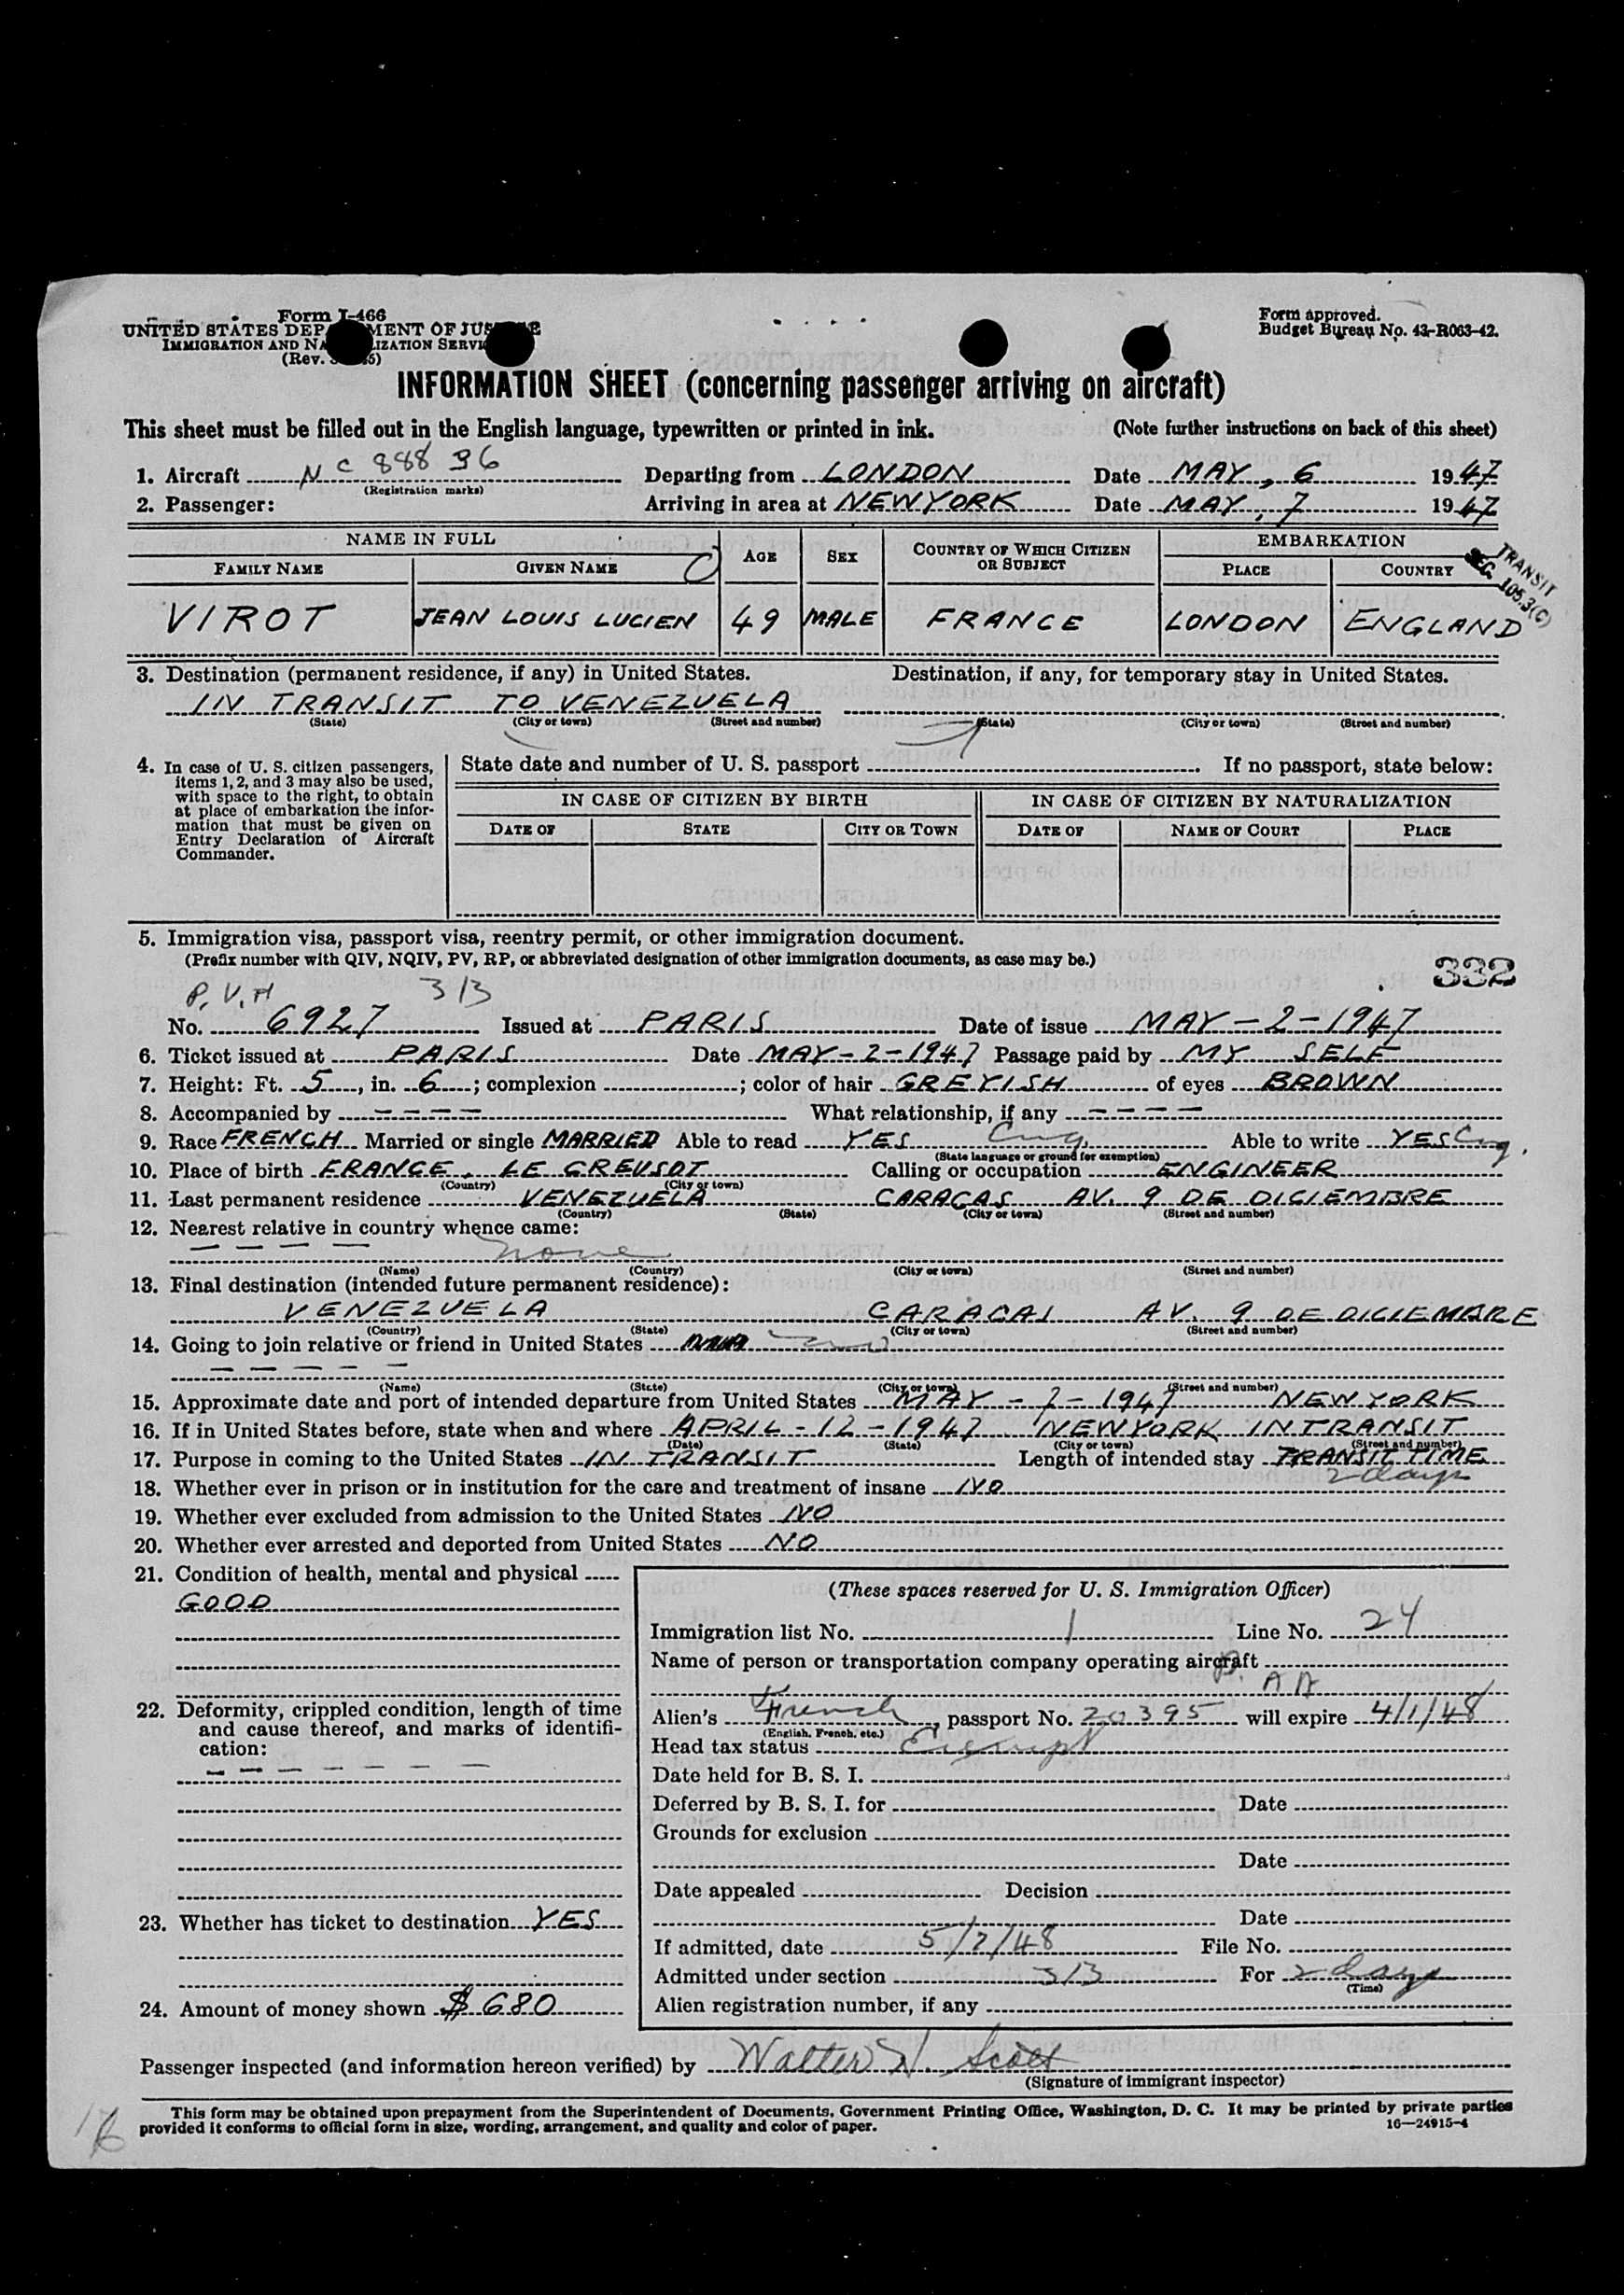 Form I-466
UNITED STATES DEPARTMENT OF JUSTICE
IMMIGRATION AND NATURALIZATION SERVICE
(Rev.
Form approved.
Budget Bureau No. 43-R063-42.
INFORMATION SHEET (concerning passenger arriving on aircraft)
This sheet must be filled out in the English language, typewritten or printed in ink. (Note further instructions on back of this sheet)
1. Aircraft NC 88836 Departing from LONDON Date MAY, 6 1947
(Registration marks)
2. Passenger: Arriving in area at NEW YORK Date MAY, 7 1947
NAME IN FULL AGE SEX COUNTRY OF WHICH CITIZEN OR SUBJECT EMBARKATION
FAMILY NAME GIVEN NAME PLACE COUNTRY
TRANSIT
SEC. 105.3(C)
VIROT JEAN LOUIS LUCIEN 49 MALE FRANCE LONDON ENGLAND
3. Destination (permanent residence, if any) in United States. Destination, if any, for temporary stay in United States.
IN TRANSIT TO VENEZUELA
(State) (City or town) (Street and number) (State) (City or town) (Street and number)
4. In case of U. S. citizen passengers,
items 1, 2, and 3 may also be used,
with space to the right, to obtain
at place of embarkation the infor-
mation that must be given on
Entry Declaration of Aircraft
Commander.
State date and number of U. S. passport If no passport, state below:
IN CASE OF CITIZEN BY BIRTH IN CASE OF CITIZEN BY NATURALIZATION
DATE OF STATE CITY OR TOWN DATE OF NAME OF COURT PLACE
5. Immigration visa, passport visa, reentry permit, or other immigration document.
(Prefix number with QIV, NQIV, PV, RP, or abbreviated designation of other immigration documents, as case may be.)
332
P.V. 3/3
No. 6927 Issued at PARIS Date of issue MAY-2-1947
6. Ticket issued at PARIS Date MAY-2-1947 Passage paid by MY SELF
7. Height: Ft. 5, in. 6; complexion ; color of hair GREYISH of eyes BROWN
8. Accompanied by ---- What relationship, if any ----
9. Race FRENCH Married or single MARRIED Able to read YES Eng. Able to write YES Eng.
(State language or ground for exemption)
10. Place of birth FRANCE, LE CREUSOT Calling or occupation ENGINEER
(Country) (City or town)
11. Last permanent residence VENEZUELA CARACAS AV. 9 DE DICIEMBRE
(Country) (State) (City or town) (Street and number)
12. Nearest relative in country whence came:
---- none
(Name) (Country) (City or town) (Street and number)
13. Final destination (intended future permanent residence):
VENEZUELA CARACAS AV. 9 DE DICIEMBRE
(Country) (State) (City or town) (Street and number)
14. Going to join relative or friend in United States no
-----
(Name) (State) (City or town) (Street and number)
15. Approximate date and port of intended departure from United States MAY-7-1947 NEW YORK
16. If in United States before, state when and where APRIL-12-1947 NEW YORK IN TRANSIT
(Date) (State) (City or town) (Street and number)
17. Purpose in coming to the United States IN TRANSIT Length of intended stay TRANSIT TIME
2 days
18. Whether ever in prison or in institution for the care and treatment of insane NO
19. Whether ever excluded from admission to the United States NO
20. Whether ever arrested and deported from United States NO
21. Condition of health, mental and physical
GOOD
22. Deformity, crippled condition, length of time
and cause thereof, and marks of identifi-
cation:
-------
23. Whether has ticket to destination YES
24. Amount of money shown $ 680
(These spaces reserved for U. S. Immigration Officer)
Immigration list No. 1 Line No. 24
Name of person or transportation company operating aircraft
P. A A
Alien's French, passport No. 20395 will expire 4/1/48
(English, French, etc.)
Head tax status Exempt
Date held for B. S. I.
Deferred by B. S. I. for Date
Grounds for exclusion
Date
Date appealed Decision
Date
If admitted, date 5/7/48 File No.
Admitted under section 3/3 For 2 days
(Time)
Alien registration number, if any
Passenger inspected (and information hereon verified) by Walter N. Scott
(Signature of immigrant inspector)
This form may be obtained upon prepayment from the Superintendent of Documents, Government Printing Office, Washington, D. C. It may be printed by private parties
provided it conforms to official form in size, wording, arrangement, and quality and color of paper. 16—24915-4